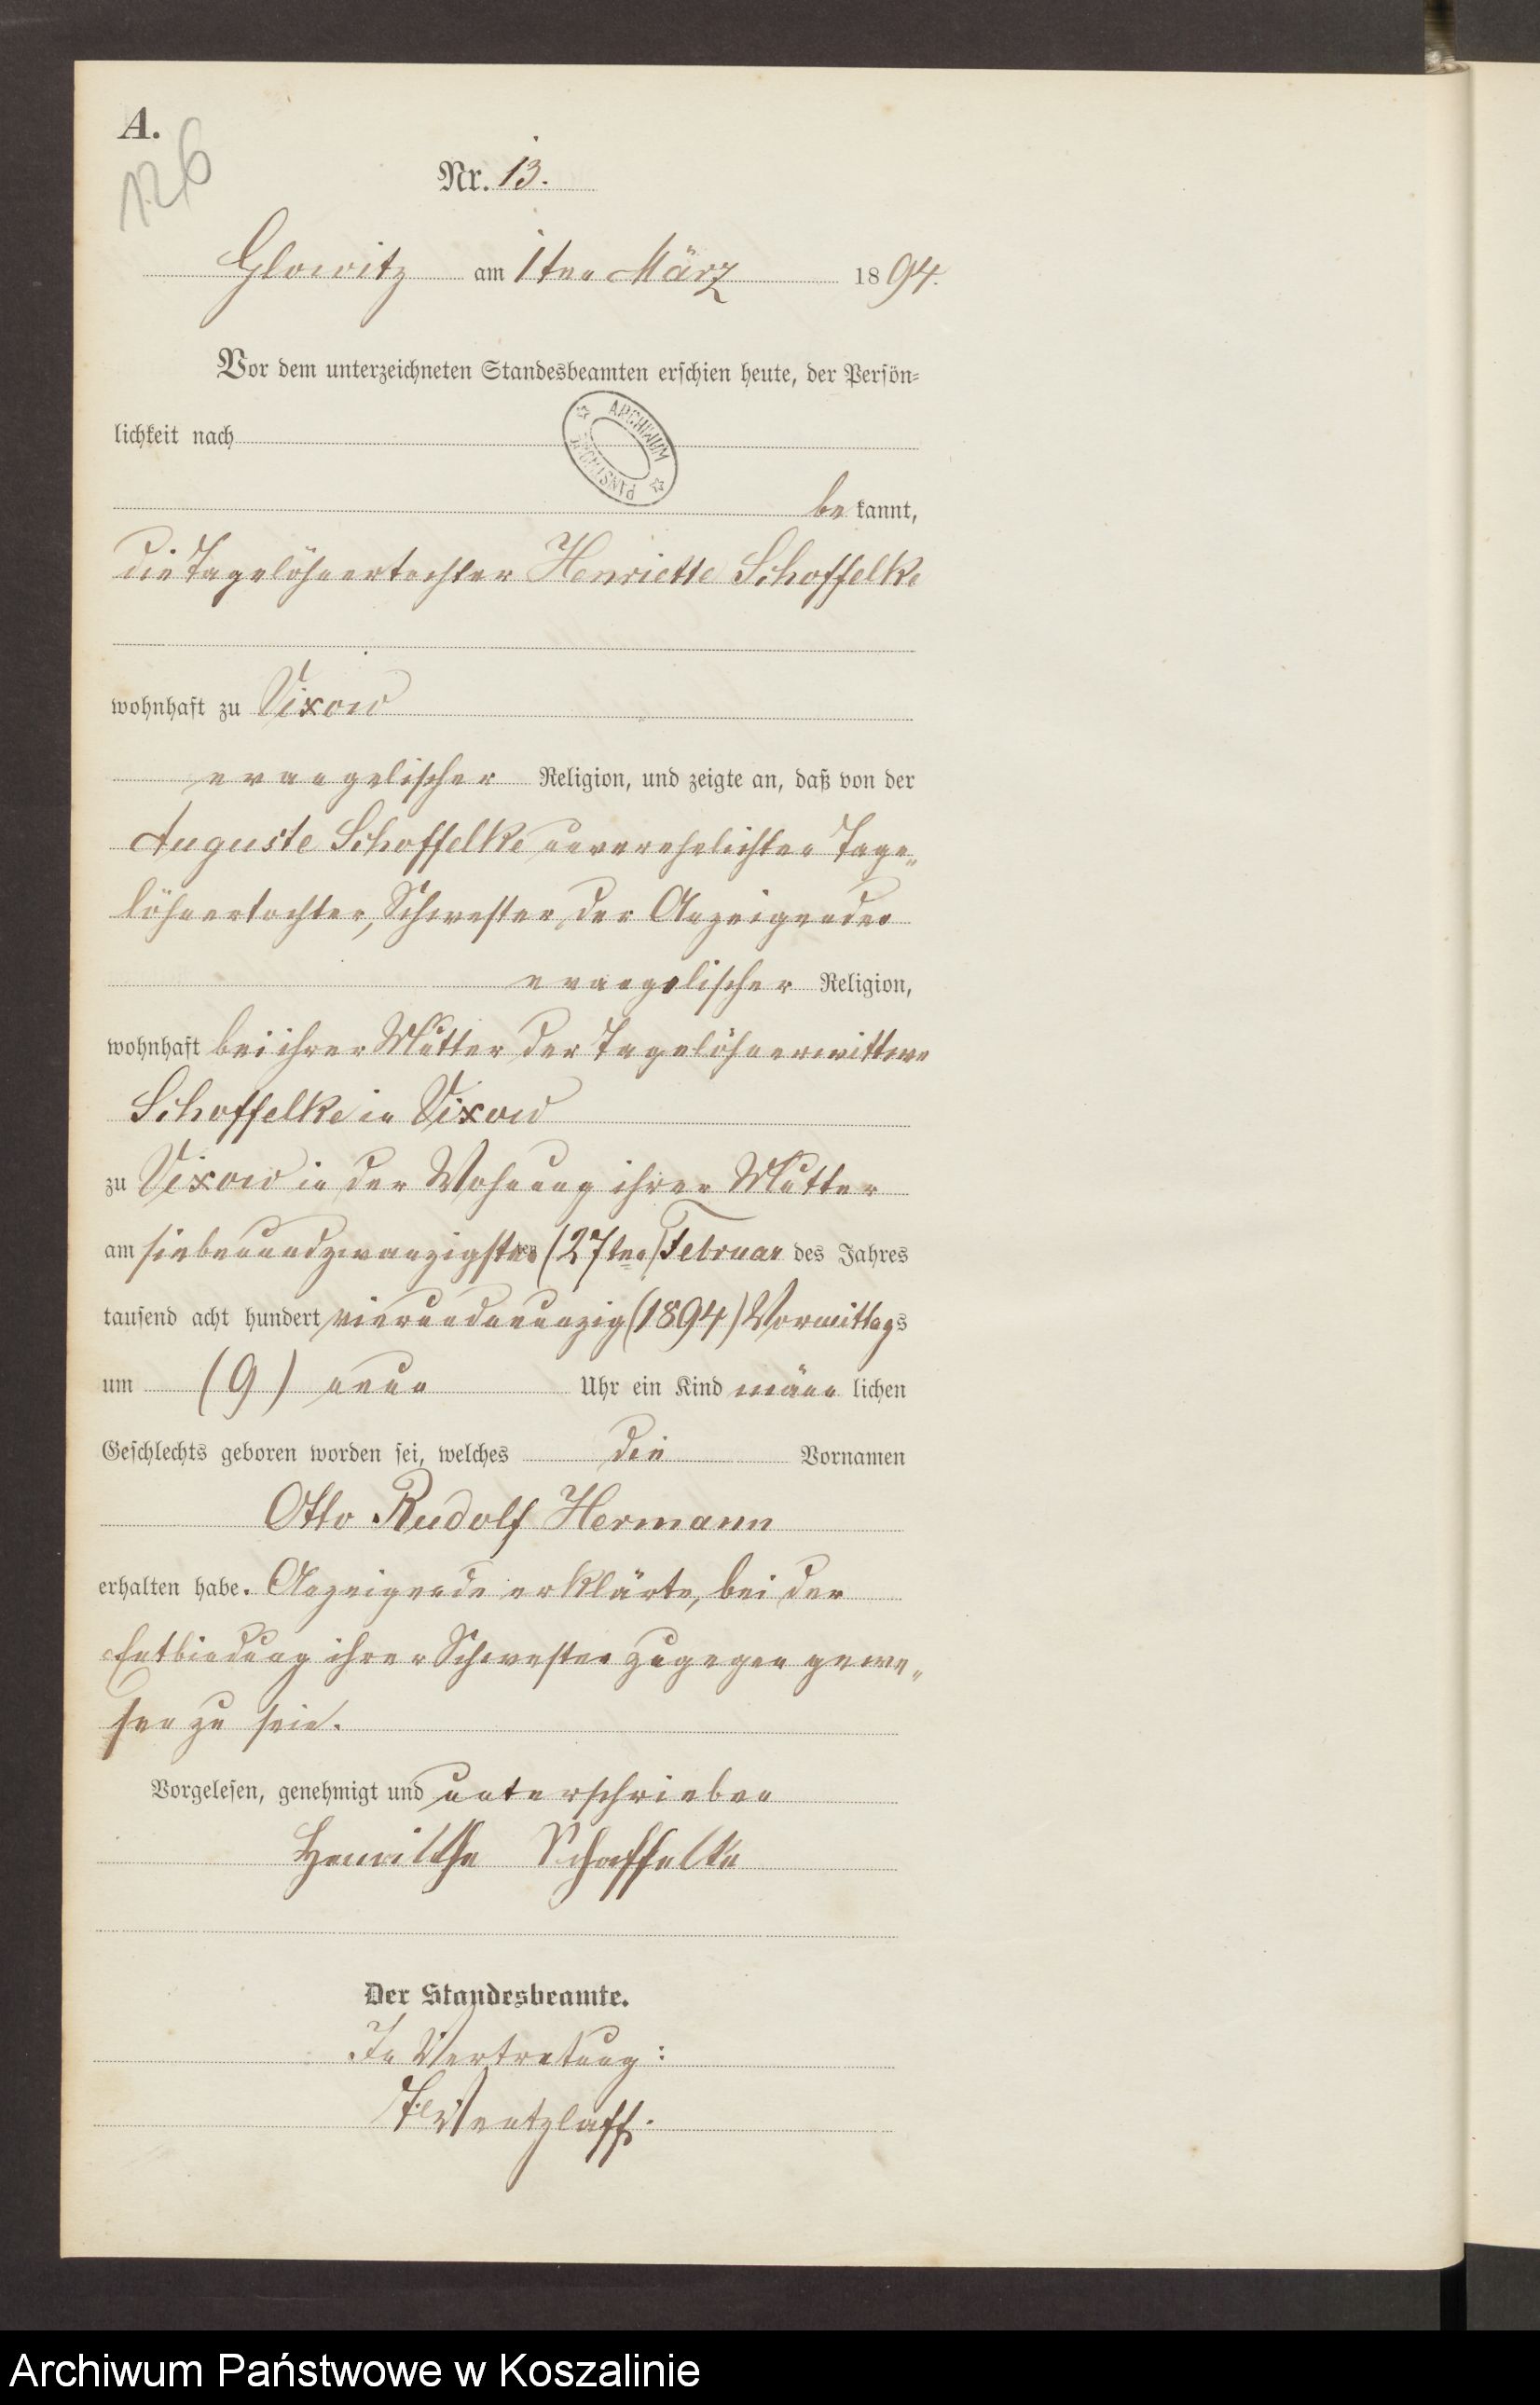 A.
126
Nr. 13.
Glowitz am 1ten März 1894.
Vor dem unterzeichneten Standesbeamten erschien heute, der Persön-
lichkeit nach
ARCHIWUM
PAŃSTWOWE
be kannt,
die Tagelöhnertochter Henriette Schoffelke
wohnhaft zu Vixow
evangelischer Religion, und zeigte an, daß von der
Auguste Schoffelke unverehelichten Tage-
löhnertochter, Schwester der Anzeigenden
evangelischer Religion,
wohnhaft bei ihrer Mutter der Tagelöhnerwittwe
Schoffelke in Vixow
zu Vixow in der Wohnung ihrer Mutter
am siebenundzwanzigsten (27ten) Februar des Jahres
tausend acht hundert vierundneunzig (1894) Vormittags
um (9) neun Uhr ein Kind männ lichen
Geschlechts geboren worden sei, welches die Vornamen
Otto Rudolf Hermann
erhalten habe. Anzeigende erklärte, bei der
Entbindung ihrer Schwester zugegen gewe-
sen zu sein.
Vorgelesen, genehmigt und unterschrieben
Schoffelke
Der Standesbeamte.
In Vertretung:
Wentzlaff.
Archiwum Państwowe w Koszalinie